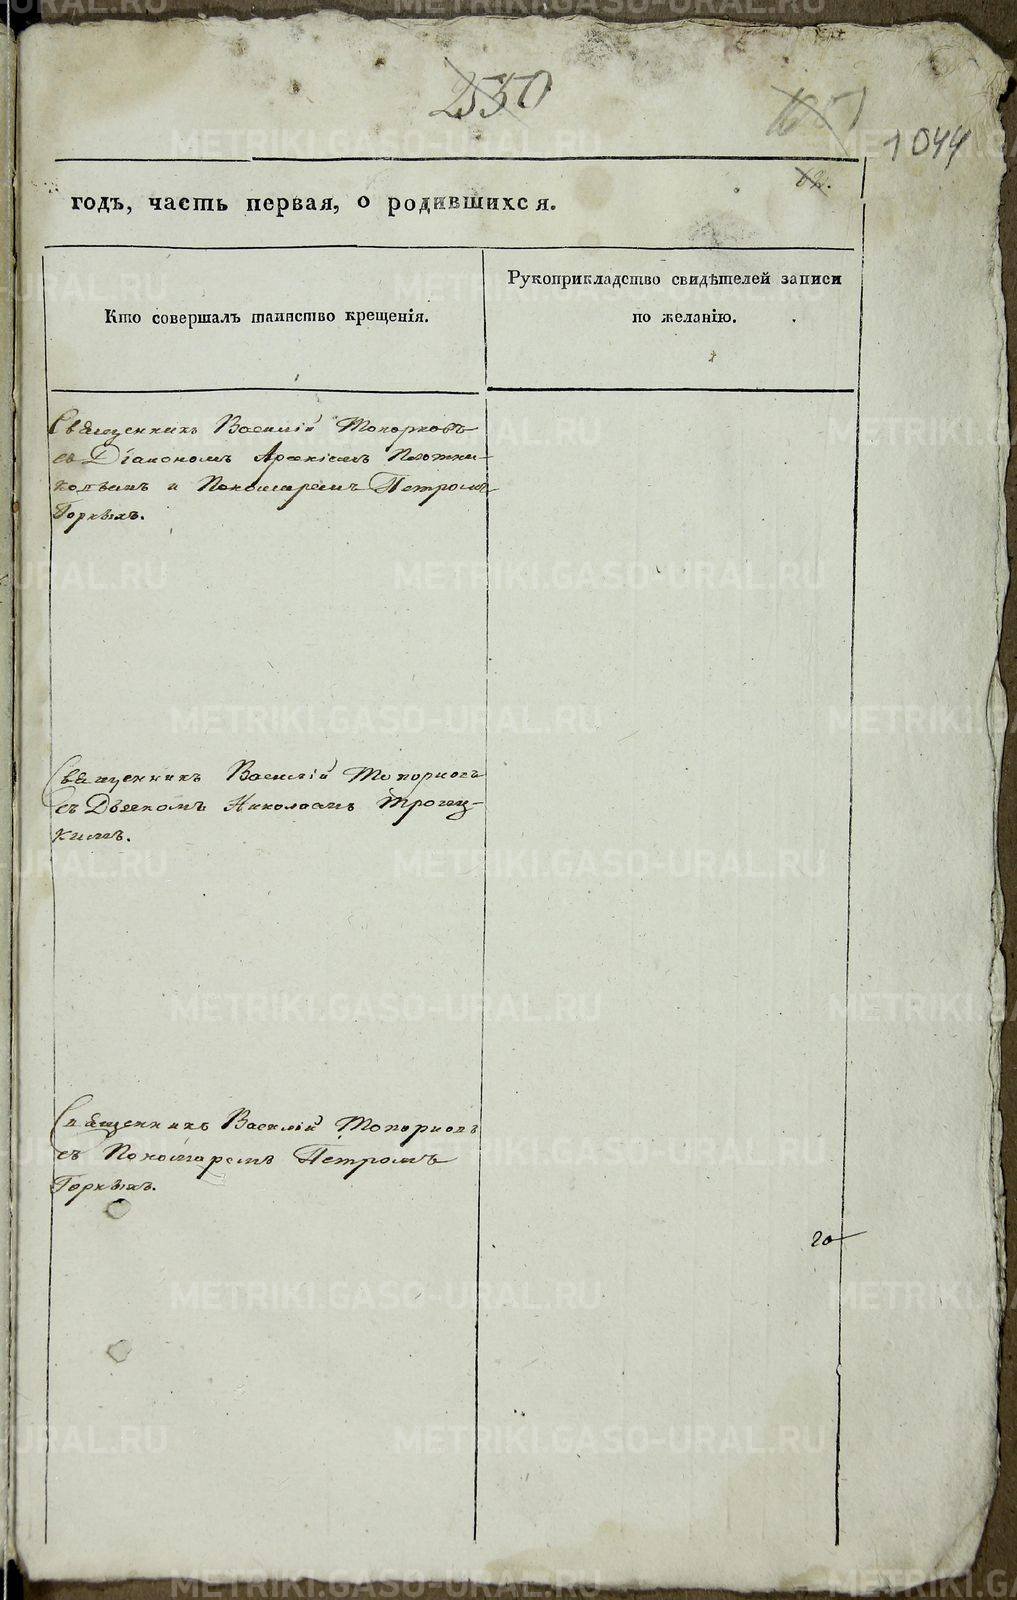 2550
1044
годъ, часть первая, о родившихся.
Кто совершалъ таинство крещенія.
Рукоприкладство свидѣтелей записи
по желанію.
Священникъ Василій Топорковъ
съ Діакономъ Плотни-
ковымъ и Пономаремъ Петромъ
Горкихъ.
Священникъ Василій Топорковъ
съ Дьячкомъ Николаемъ Троиц-
кимъ.
Священникъ Василій Топорковъ
съ Пономаремъ Петромъ
Горкихъ.
20
METRIKI.GASO-URAL.RU